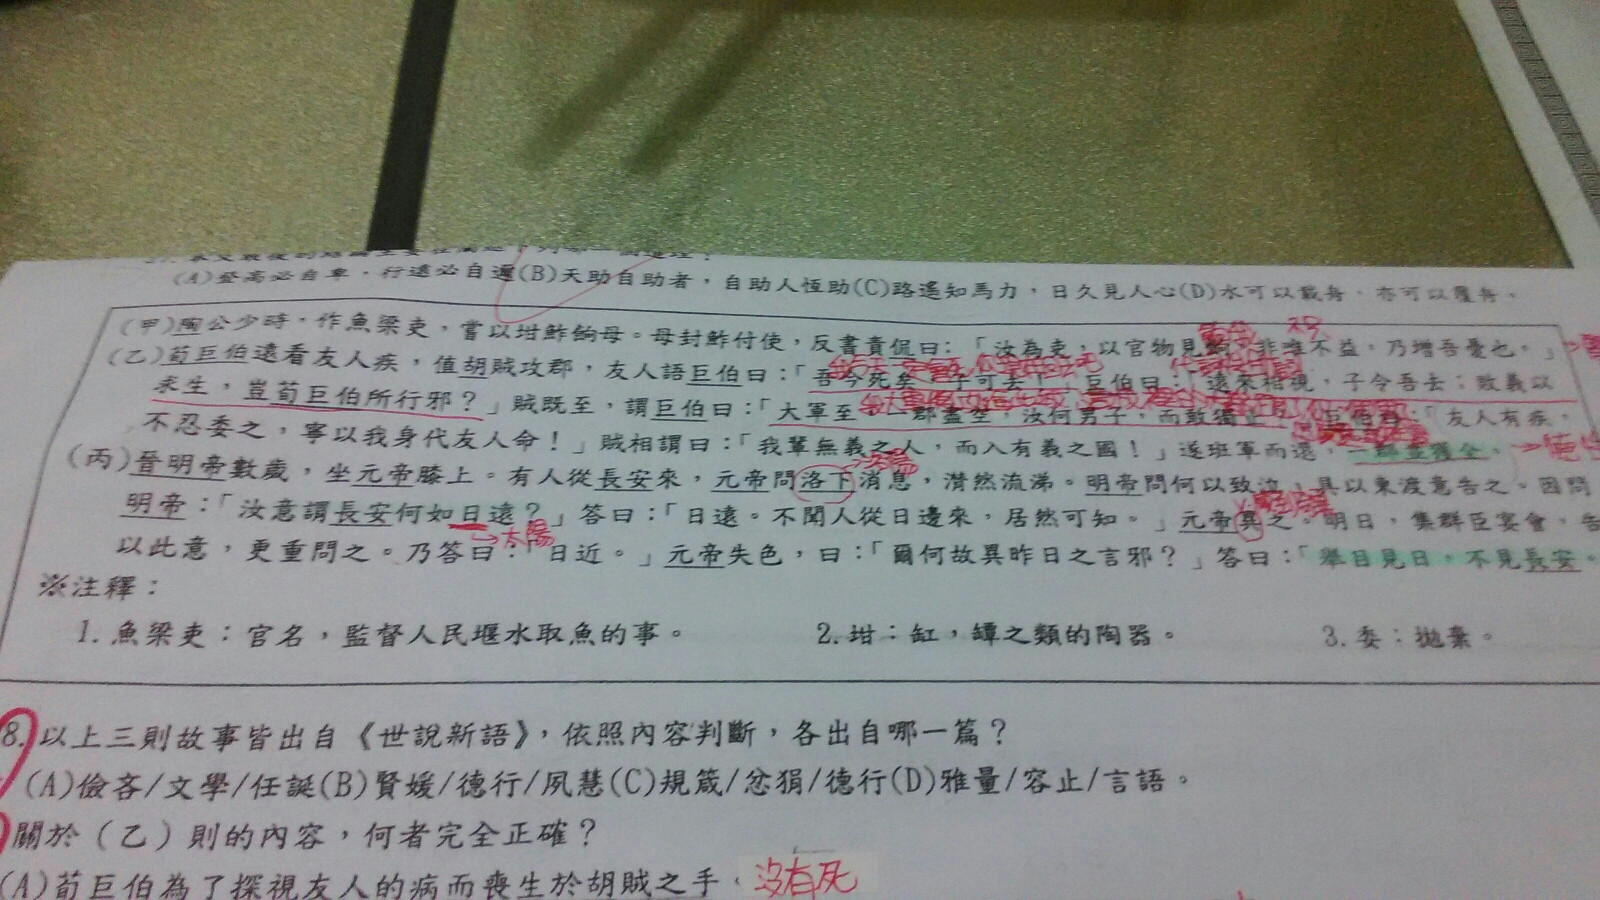 (A)登高必自卑，行遠必自邇(B)天助自助者，自助人恆助(C)路遙知馬力，日久見人心(D)水可以載舟，亦可以覆舟。
(甲)陶公少時，作魚梁吏，嘗以坩鮓餉母。母封鮓付使，反書責侃曰：「汝為吏，以官物見餉，非唯不益，乃增吾憂也。」
(乙)荀巨伯遠看友人疾，值胡賊攻郡，友人語巨伯曰：「吾今死矣，子可去！」巨伯曰：「遠來相視，子令吾去；敗義以
求生，豈荀巨伯所行邪？」賊既至，謂巨伯曰：「大軍至，一郡盡空，汝何男子，而敢獨止？」巨伯曰：「友人有疾，
不忍委之，寧以我身代友人命！」賊相謂曰：「我輩無義之人，而入有義之國！」遂班軍而還，一郡並獲全。
(丙)晉明帝數歲，坐元帝膝上。有人從長安來，元帝問洛下消息，潸然流涕。明帝問何以致泣，具以東渡意告之。因問
明帝：「汝意謂長安何如日遠？」答曰：「日遠。不聞人從日邊來，居然可知。」元帝異之。明日，集群臣宴會，告
太陽
以此意，更重問之。乃答曰：「日近。」元帝失色，曰：「爾何故異昨日之言邪？」答曰：「舉目見日，不見長安。
※注釋：
1.魚梁吏：官名，監督人民堰水取魚的事。 2.坩：缸，罈之類的陶器。 3.委：拋棄。
8.以上三則故事皆出自《世說新語》，依照內容判斷，各出自哪一篇？
(A)儉吝/文學/任誕(B)賢媛/德行/夙慧(C)規箴/忿狷/德行(D)雅量/容止/言語。
關於（乙）則的內容，何者完全正確？
(A)荀巨伯為了探視友人的病而喪生於胡賊之手。 沒有死